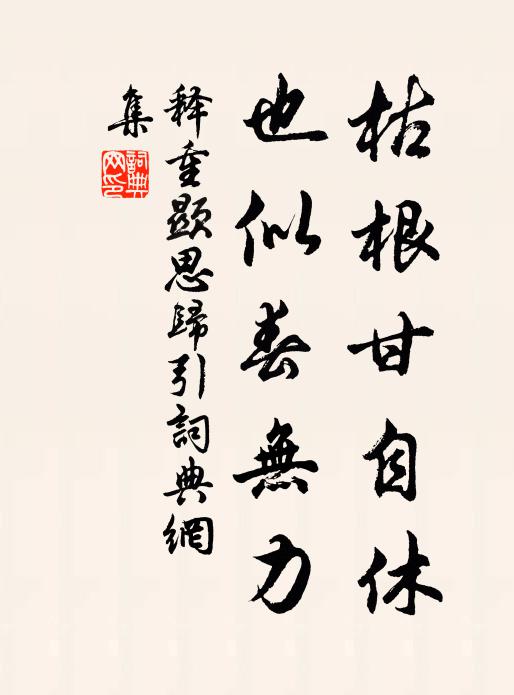 枯根甘自休
也似春無力
释重顯思歸引詞典網
集
詞典
网印